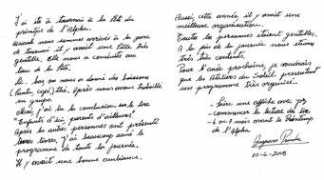 J'ai été à tournai à la fête du
printemps de l'Alpha.
Quand nous sommes arrivés à la gare
de tournai il y avait une fille très
gentille. Elle nous a conduits au
lieu de la fête.
Là-bas on nous a donné des boissons
(, café, thé). Après nous avons travaillé
en groupe.
Moi, j'ai lu la conclusion sur le livre
"Enfants d'ici, parents d'ailleurs"
Après les autres personnes ont présenté
leur livre, j'ai beaucoup aimé le
programme de toute la journée.
Il y avait une bonne ambiance.
Aussi, cette année il y avait une
meilleure organisation.
Toutes les personnes étaient gentilles.
A la fin de la journée nous étions
très très contents.
Pour l'année prochaine, je voudrais
que les Ateliers du Soleil présentent
un programme très organisé.
- faire une affiche avec
- commencer la lecture du livre
6 ou 7 mois avant le Printemps
de l'Alpha